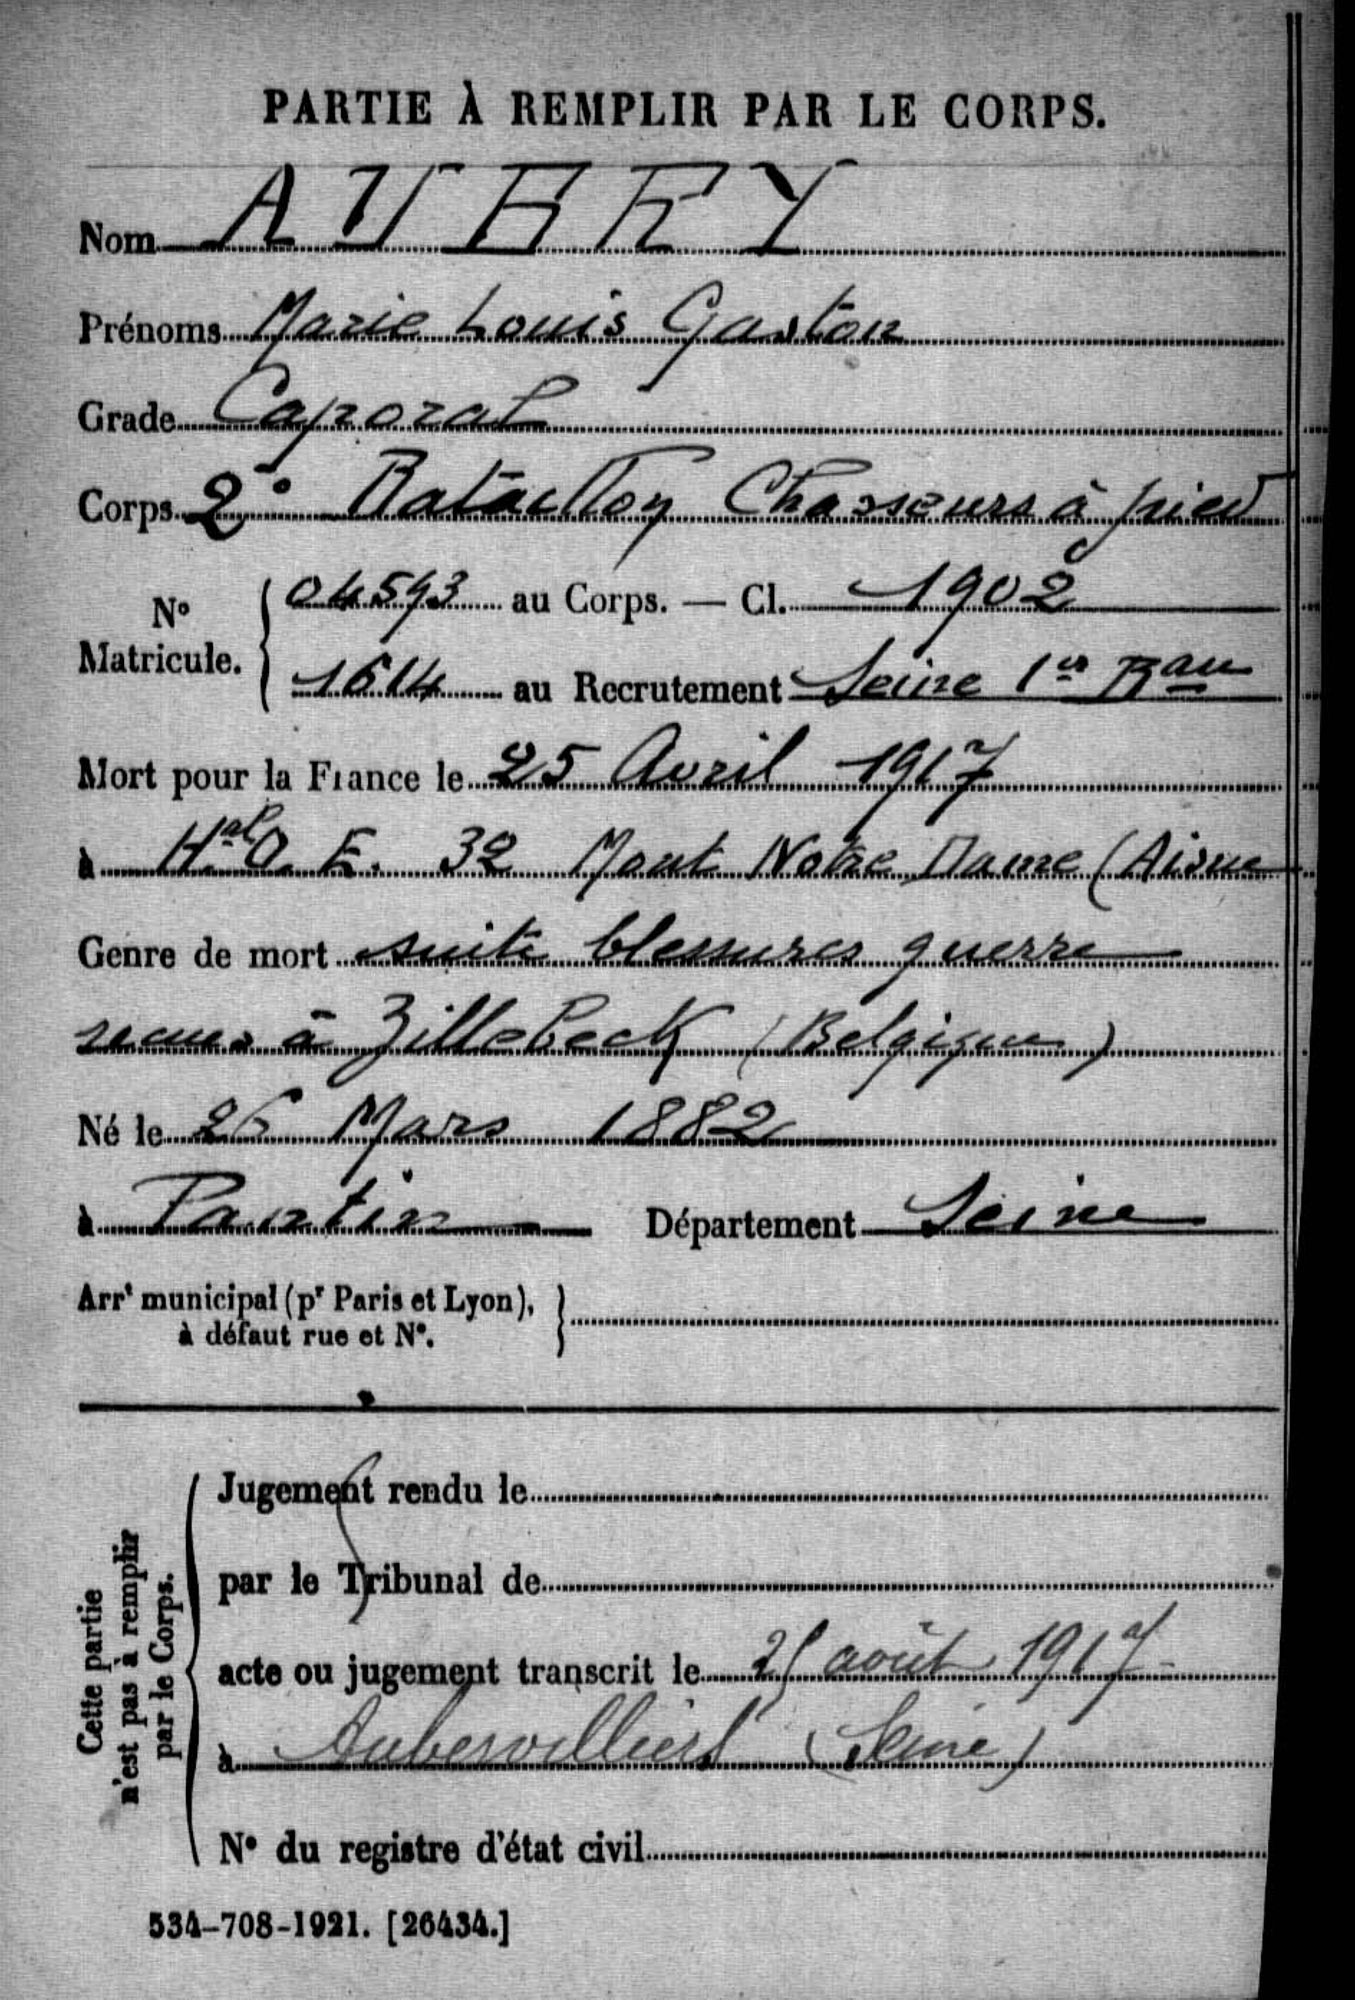 PARTIE À REMPLIR PAR LE CORPS.
Nom AUBRY
Prénoms Marie Louis Gaston
Grade Caporal
Corps 2° Bataillon Chasseurs à pied
N° Matricule. 04593 au Corps. — Cl. 1902
1614 au Recrutement Seine 1er Bau
Mort pour la France le 25 Avril 1917
à Hal O. E. 32 Mont Notre Dame (Aisne
Genre de mort suite blessures guerre
recues à Zillebeck (Belgique)
Né le 26 Mars 1882
à Pantin Département Seine
Arrt municipal (pr Paris et Lyon),
à défaut rue et N°.
Cette partie
n'est pas à remplir
par le Corps.
Jugement rendu le
par le Tribunal de
acte ou jugement transcrit le août 1917
à Aubervilliers (Seine)
N° du registre d'état civil
534-708-1921. [26434.]